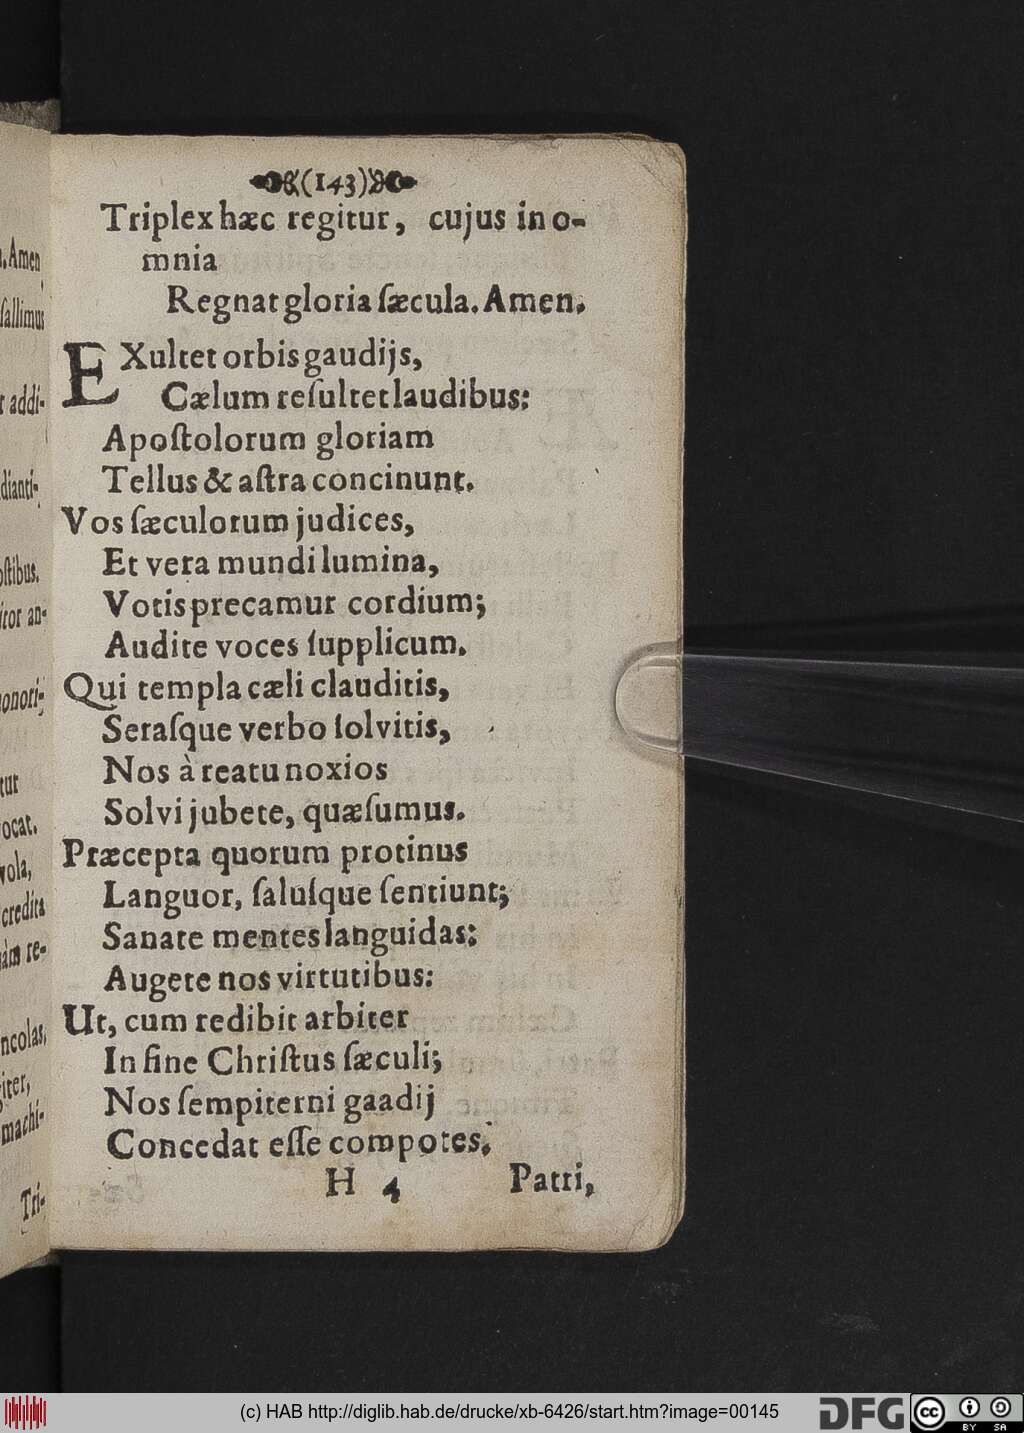 (143)
Triplex hæc regitur, cujus in o-
mnia
Regnat gloria ſæcula. Amen.
EXultet orbis gaudijs,
Cælum reſultet laudibus:
Apoſtolorum gloriam
Tellus & aſtra concinunt.
Vos ſæculorum judices,
Et vera mundi lumina,
Votis precamur cordium;
Audite voces ſupplicum.
Qui templa cæli clauditis,
Seraſque verbo ſolvitis,
Nos à reatu noxios
Solvi jubete, quæſumus.
Præcepta quorum protinus
Languor, ſaluſque ſentiunt;
Sanate mentes languidas:
Augete nos virtutibus:
Ut, cum redibit arbiter
In fine Chriſtus ſæculi;
Nos ſempiterni gaadij
Concedat eſſe compotes.
H 4 Patri,
. Amen
ſallimus
r addi-
dianti-
oſtibus.
itor an-
onori-
tur
ocat.
vola,
credita
àm re-
ncolas,
giter,
machi-
Tri-
(c) HAB http://diglib.hab.de/drucke/xb-6426/start.htm?image=00145
DFG
cc BY SA